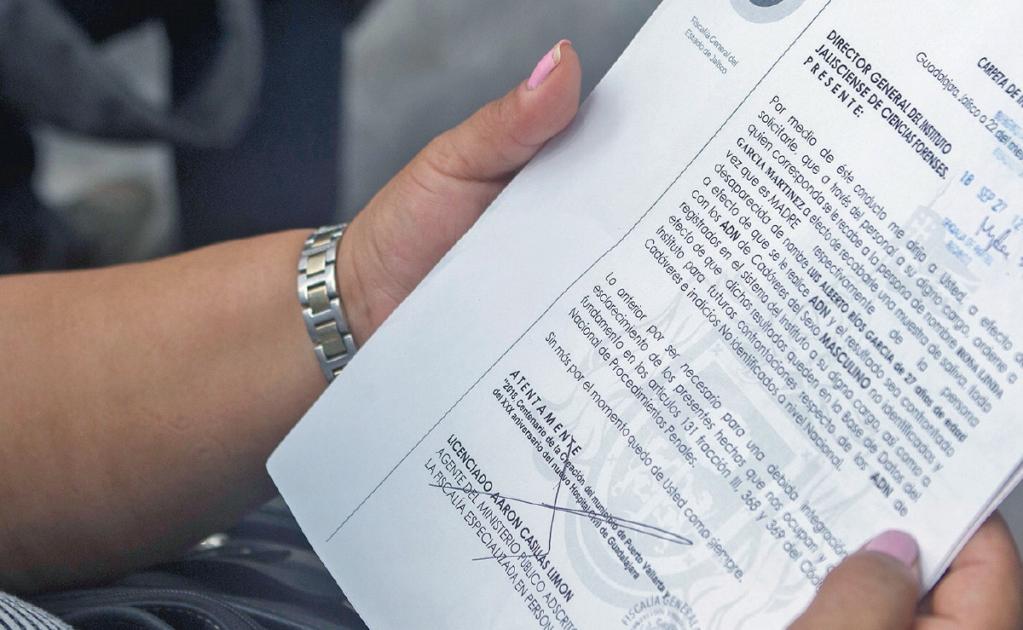 Fiscalía General del
Estado de Jalisco
CARPETA DE
Guadalajara, Jalisco a 22 del mes
DIRECTOR GENERAL DEL INSTITUTO
JALISCIENSE DE CIENCIAS FORENSES.
P R E S E N T E:
18 SEP 27
Por medio de éste conducto me dirijo a Usted, a efecto de
solicitarle, que a través del personal a su digno cargo, ordene a
quien corresponda se le recabe a la persona de nombre
GARCIA MARTINEZ a efecto de recabarle, una muestra de saliva, toda
vez que es MADRE respectivamente de la persona
desaparecido de nombre LUIS ALBERTO RIOS GARCIA de 27 años de edad
a efecto de que se le realice ADN y el resultado sea confrontado
con los ADN de Cadáveres del Sexo MASCULINO no identificados y
registrados en el sistema del Instituto a su digno cargo, así como a
efecto de que dichos resultados queden en la Base de Datos del
Instituto para futuras confrontaciones respecto de los ADN de
Cadáveres e indicios No identificados a nivel Nacional.
Lo anterior por ser necesario para una debida integración
esclarecimiento de los presentes hechos que nos ocupan y con
fundamento en los artículos 131 fracción III, 368 y 369 del Código
Nacional de Procedimientos Penales.
Sin más por el momento quedo de Usted como siempre.
A T E N T A M E N T E
"2018, Centenario de la Creación del municipio de Puerto Vallarta y
del XXX aniversario del nuevo Hospital Civil de Guadalajara
LICENCIADO AARON CASILLAS LIMON
AGENTE DEL MINISTERIO PÚBLICO ADSCRITO
LA FISCALÍA ESPECIALIZADA EN PERSON
FISCALÍA GENERAL